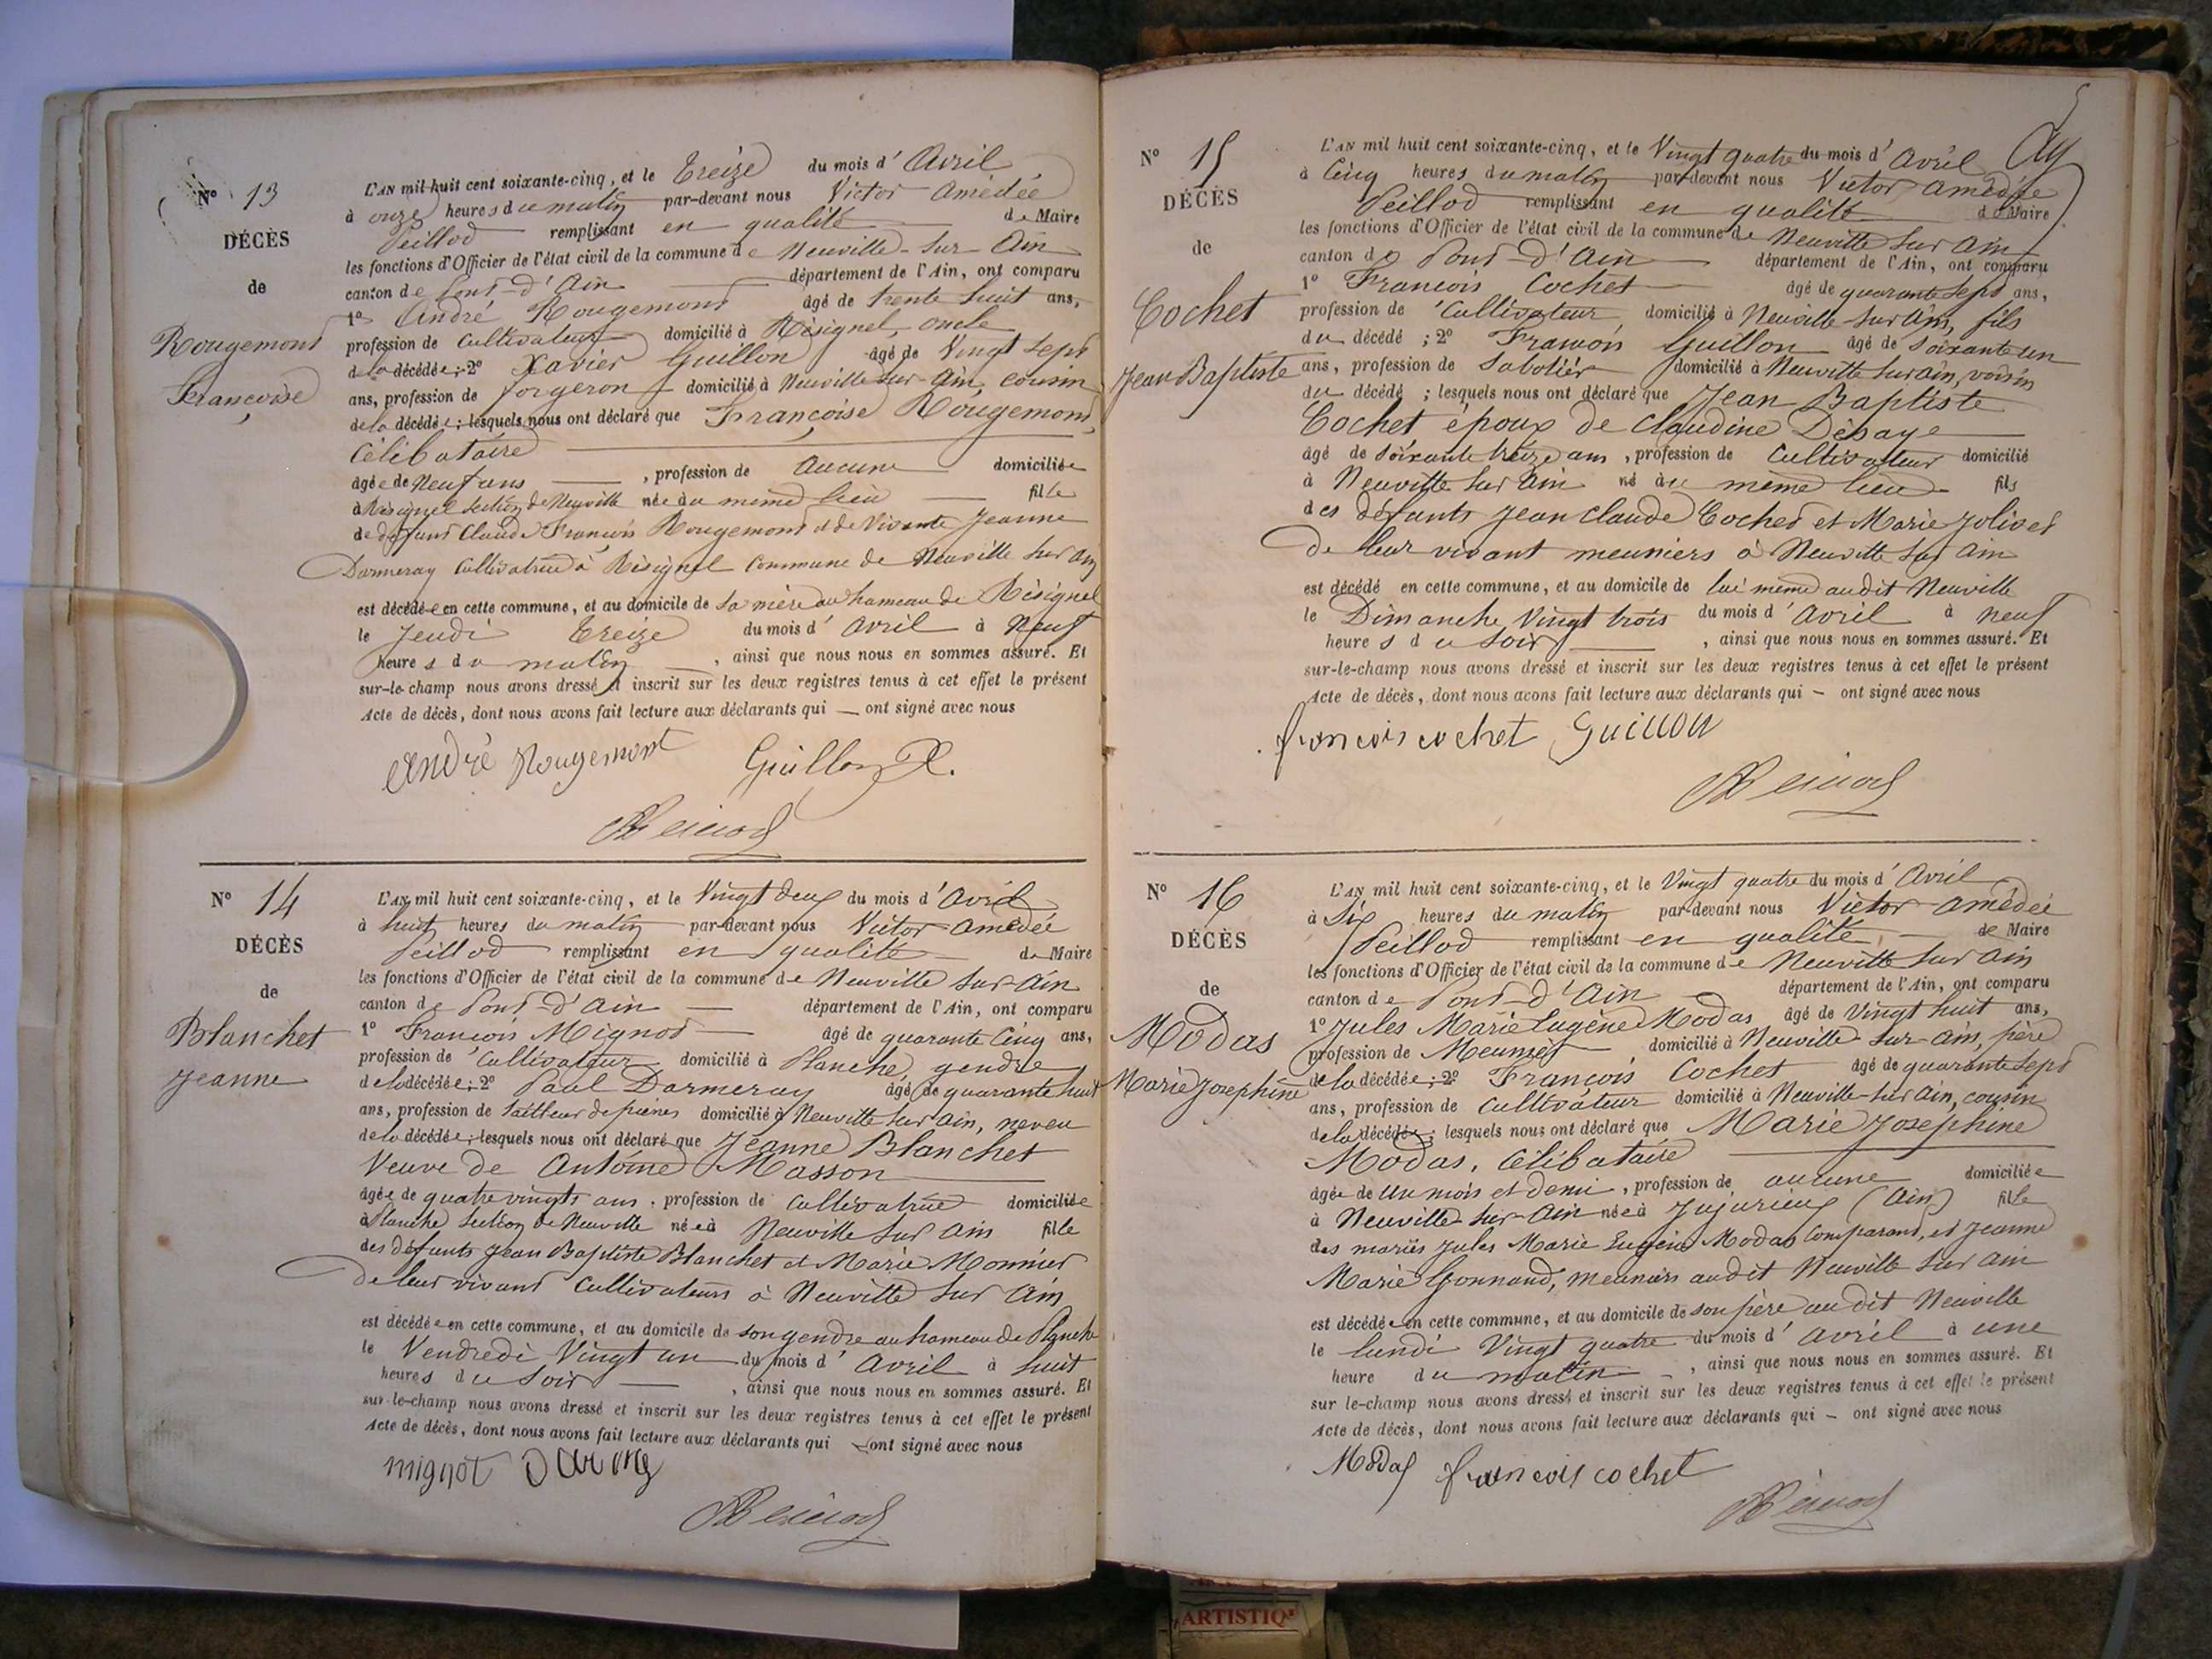 N° 13
DÉCÈS
de
Rougemont
Françoise
L'AN mil huit cent soixante-cinq, et le Treize du mois d'Avril
à onze heures du matin par-devant nous Victor Amédée
Peillod remplissant en qualité de Maire
les fonctions d'Officier de l'état civil de la commune de Neuville-sur-Ain
canton de Pont-d'Ain département de l'Ain, ont comparu
1° André Rougemont âgé de trente huit ans,
profession de Cultivateur domicilié à Résignel, oncle
de la décédée; 2° Xavier Guillon âgé de Vingt sept
ans, profession de forgeron domicilié à Neuville sur Ain, cousin
de la décédée; lesquels nous ont déclaré que Françoise Rougemont,
Célibataire
âgée de Neuf ans, profession de Aucune domiciliée
à Résignel section de Neuville née au même lieu fille
de défunt Claude François Rougemont et de Vivante Jeanne
Darmeray Cultivatrice à Résignel Commune de Neuville sur Ain
est décédée en cette commune, et au domicile de sa mère au hameau de Résignel
le Jeudi Treize du mois d'avril à Neuf
heures du matin, ainsi que nous nous en sommes assuré. Et
sur-le-champ nous avons dressé et inscrit sur les deux registres tenus à cet effet le présent
Acte de décès, dont nous avons fait lecture aux déclarants qui — ont signé avec nous
André Rougemont Guillon X.
N° 14
DÉCÈS
de
Blanchet
Jeanne
L'AN mil huit cent soixante-cinq, et le Vingt deux du mois d'Avril
à huit heures du matin par-devant nous Victor Amédée
Peillod remplissant en qualité de Maire
les fonctions d'Officier de l'état civil de la commune de Neuville sur Ain
canton de Pont-d'Ain département de l'Ain, ont comparu
1° François Mignot âgé de quarante Cinq ans,
profession de Cultivateur domicilié à Planche, gendre
de la décédée; 2° Paul Darmeray âgé de quarante huit
ans, profession de tailleur de pierres domicilié à Neuville sur Ain, neveu
de la décédée; lesquels nous ont déclaré que Jeanne Blanchet
Veuve de Antoine Masson
âgée de quatre vingts ans, profession de Cultivatrice domiciliée
à Planche Section de Neuville née à Neuville sur Ain fille
des défunts Jean Baptiste Blanchet et Marie Monnier
de leur vivant Cultivateurs à Neuville sur Ain
est décédée en cette commune, et au domicile de son gendre au hameau de Planche
le Vendredi Vingt un du mois d'avril à huit
heures du soir, ainsi que nous nous en sommes assuré. Et
sur-le-champ nous avons dressé et inscrit sur les deux registres tenus à cet effet le présent
Acte de décès, dont nous avons fait lecture aux déclarants qui — ont signé avec nous
mignot
N° 15
DÉCÈS
de
Cochet
Jean Baptiste
L'AN mil huit cent soixante-cinq, et le Vingt quatre du mois d'Avril
à Cinq heures du matin par-devant nous Victor Amédée
Peillod remplissant en qualité de Maire
les fonctions d'Officier de l'état civil de la commune de Neuville sur Ain
canton de Pont-d'Ain département de l'Ain, ont comparu
1° François Cochet âgé de quarante sept ans,
profession de Cultivateur domicilié à Neuville sur Ain, fils
du décédé; 2° François Guillon âgé de soixante un
ans, profession de Sabotier domicilié à Neuville sur ain, voisin
du décédé; lesquels nous ont déclaré que Jean Baptiste
Cochet époux de Claudine Debaye
âgé de soixante treize ans, profession de Cultivateur domicilié
à Neuville sur Ain né au même lieu fils
des défunts Jean Claude Cochet et Marie Jolivet
de leur vivant meuniers à Neuville sur Ain
est décédé en cette commune, et au domicile de lui même audit Neuville
le Dimanche Vingt trois du mois d'Avril à neuf
heures du soir, ainsi que nous nous en sommes assuré. Et
sur-le-champ nous avons dressé et inscrit sur les deux registres tenus à cet effet le présent
Acte de décès, dont nous avons fait lecture aux déclarants qui — ont signé avec nous
francois cochet Guillon
N° 16
DÉCÈS
de
Modas
Marie Josephine
L'AN mil huit cent soixante-cinq, et le Vingt quatre du mois d'Avril
à Six heures du matin par-devant nous Victor Amédée
Peillod remplissant en qualité de Maire
les fonctions d'Officier de l'état civil de la commune de Neuville sur Ain
canton de Pont-d'Ain département de l'Ain, ont comparu
1° Jules Marie Eugène Modas âgé de Vingt huit ans,
profession de Meunier domicilié à Neuville sur Ain, père
de la décédée; 2° François Cochet âgé de quarante sept
ans, profession de Cultivateur domicilié à Neuville sur ain, cousin
de la décédée; lesquels nous ont déclaré que Marie Josephine
Modas, Célibataire
âgée de un mois et demi, profession de aucune domiciliée
à Neuville sur Ain née à Jujurieux (Ain) fille
des mariés Jules Marie Eugène Modas Comparant, et Jeanne
Marie Gonnand, meuniers audit Neuville sur Ain
est décédée en cette commune, et au domicile de son père au dit Neuville
le lundi Vingt quatre du mois d'avril à une
heure du matin, ainsi que nous nous en sommes assuré. Et
sur-le-champ nous avons dressé et inscrit sur les deux registres tenus à cet effet le présent
Acte de décès, dont nous avons fait lecture aux déclarants qui — ont signé avec nous
Modas francois cochet
ARTISTIQ